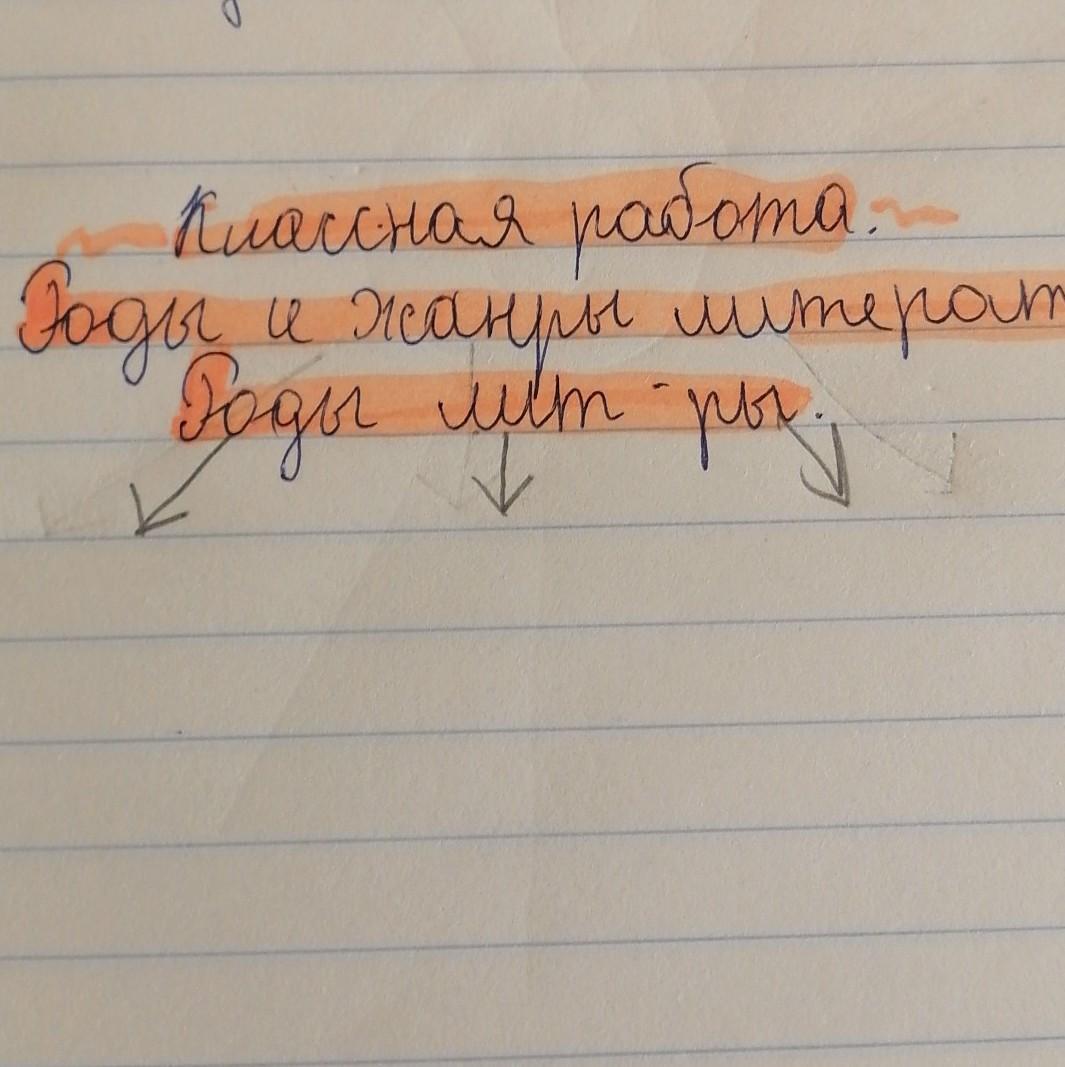 Классная работа.
Роды и жанры литерат
Роды лит-ры.